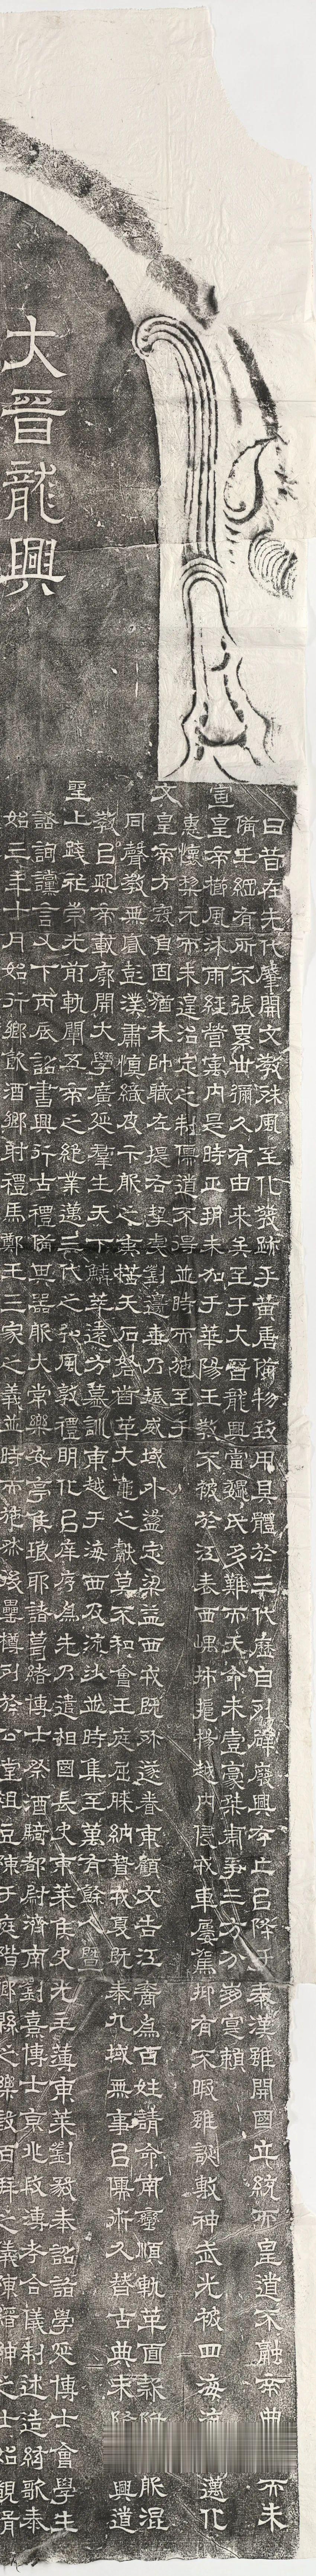 大晉龍興
曰昔在先代肇開文教殊風至化發跡乎黃唐備物致用具體於三代歷自列辟廢興存亡以降于秦漢雖開國立統而皇道不融帝典而未
備王綱有所不張累世彌久有由來矣至于大晉龍興當魏氏多難而天命未壹豪桀虎爭三方分崩寔賴
宣皇帝櫛風沐雨經營寓內是時正朔未加乎華陽王教不被於江表西嵎擾揚越內侵戎車屢駕抑有不暇雖誕敷神武光被四海流邁化
惠懷黎元而未遑治定之制儒道不得並時而施至乎
文皇帝方寇負固猶未帥職左提右挈虔劉邊垂乃振威域外盪定梁益西戎既殄遂眷東顧文告江裔為百姓請命南蠻順軌革面款附服混
同聲教無貳彭濮肅慎織皮卞服之夷楛矢石砮齒革大龜之獻莫不和會王庭屈膝納贄戎夏既泰九域無事以儒術久替古典未隆興道
教以熙帝載廓開大學廣延群生天下鱗萃遠方慕訓東越于海西及流沙並時集至萬有餘人暨
聖上踐祚崇光前軌闡五帝之絕業邁三代之弘風敦禮明化以庠序為先乃遣相國長史東萊侯史光主簿東萊劉毅奉詔詣學延博士會學生
諮詢讜言又下丙辰詔書興行古禮備其器服大常樂安亭侯琅耶諸葛緒博士祭酒騎都尉濟南劉熹博士京兆段溥考合儀制述造絃歌泰
始三年十月始行鄉飲酒鄉射禮馬鄭王三家之義並時而施然後罍樽列於公堂俎豆陳于庭階鄉縣之樂設百拜之儀陳縉紳之士始覩揖